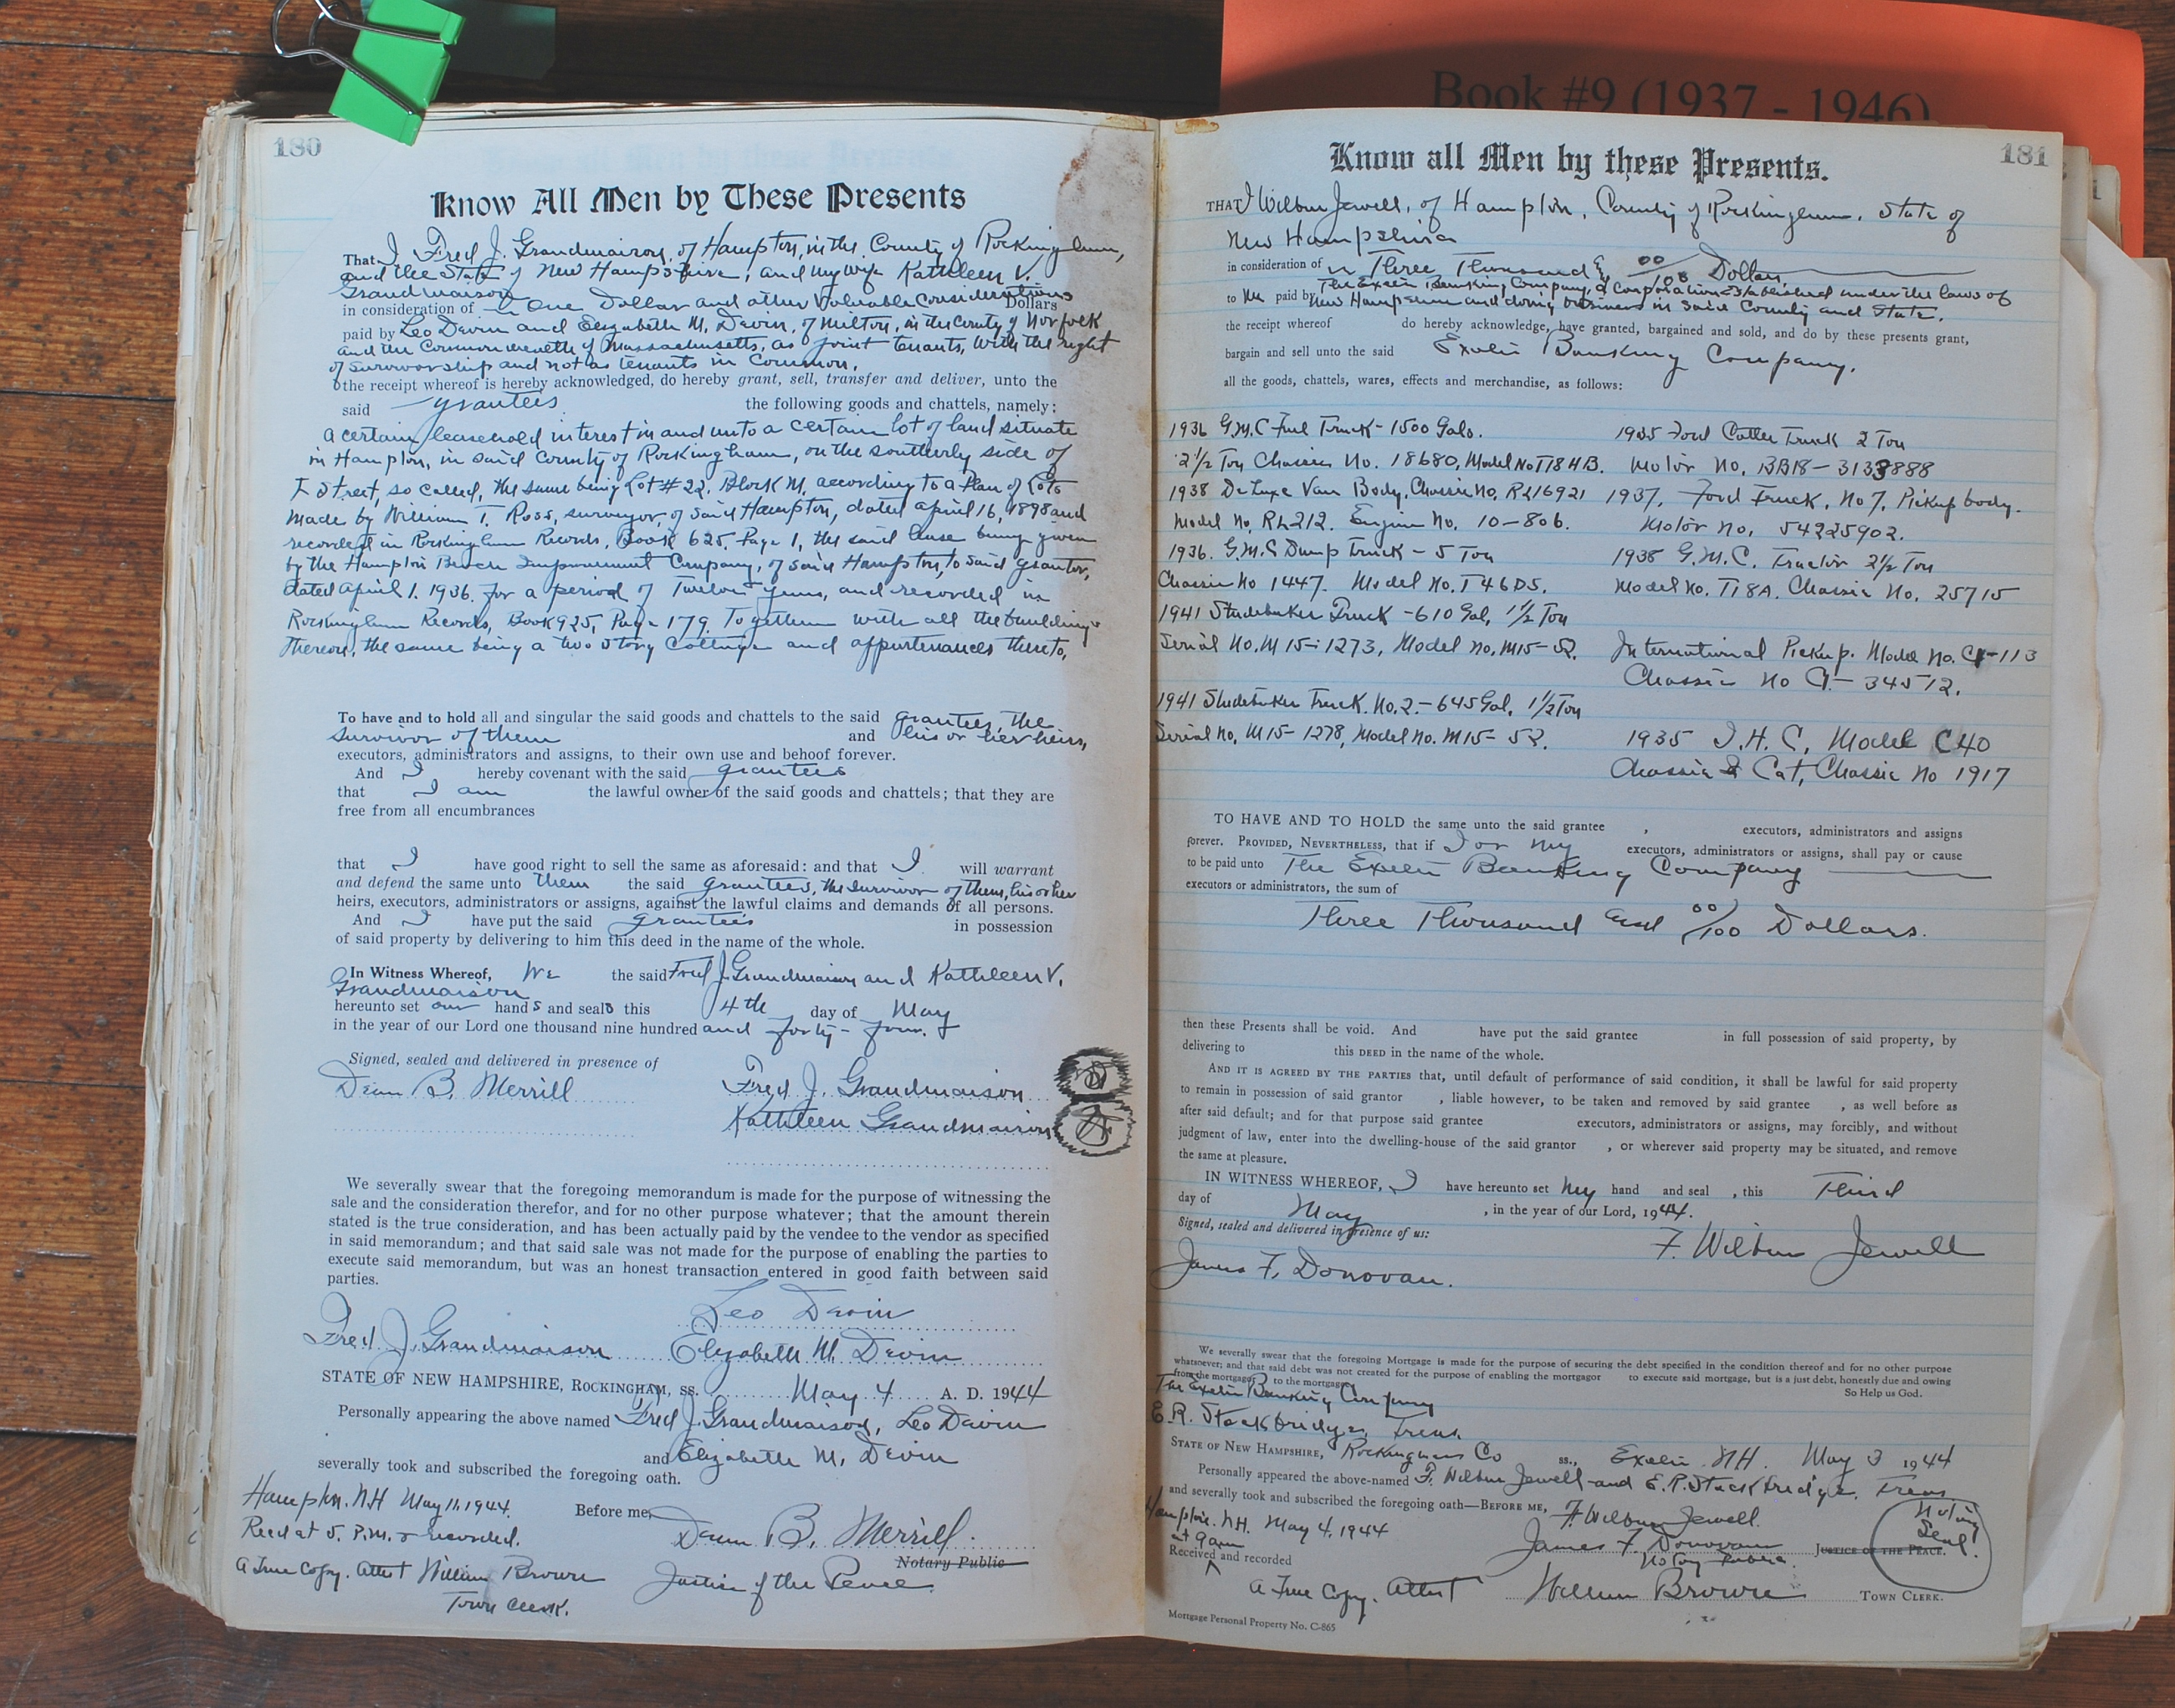 Book #9 (1937 - 1946)
180
Know All Men by These Presents
That I Fred J. Grandmaison, of Hampton, in the County of Rockingham,
and the State of New Hampshire, and my wife Kathleen V.
Grandmaison
in consideration of One Dollar and other Valuable Considerations Dollars
paid by Leo Devin and Elizabeth M. Devin, of Milton, in the County of Norfolk
and the Commonwealth of Massachusetts, as joint tenants, with the right
of survivorship and not as tenants in common,
the receipt whereof is hereby acknowledged, do hereby grant, sell, transfer and deliver, unto the
said grantees the following goods and chattels, namely;
a certain leasehold interest in and unto a certain lot of land situate
in Hampton, in said County of Rockingham, on the southerly side of
F Street, so called, the same being Lot #22, Block M, according to a Plan of Lots
made by William T. Ross, surveyor, of said Hampton, dated april 16, 1898 and
recorded in Rockingham Records, Book 625, Page 1, the said lease being given
by the Hampton Beach Improvement Company, of said Hampton, to said grantor,
dated april 1. 1936. for a period of Twelve years, and recorded in
Rockingham Records, Book 925, Page 179. Together with all the buildings
thereon, the same being a two story Cottage and appurtenances thereto,
To have and to hold all and singular the said goods and chattels to the said grantees, the
survivor of them and his or her heirs,
executors, administrators and assigns, to their own use and behoof forever.
And I hereby covenant with the said grantees
that I am the lawful owner of the said goods and chattels; that they are
free from all encumbrances
that I have good right to sell the same as aforesaid: and that I will warrant
and defend the same unto them the said grantees, the survivor of them, his or her
heirs, executors, administrators or assigns, against the lawful claims and demands of all persons.
And I have put the said grantees in possession
of said property by delivering to him this deed in the name of the whole.
In Witness Whereof, We the said Fred J. Grandmaison and Kathleen V.
Grandmaison
hereunto set our hands and seals this 4th day of May
in the year of our Lord one thousand nine hundred and forty-four.
Signed, sealed and delivered in presence of
Dean B. Merrill Fred J. Grandmaison
Kathleen Grandmaison
We severally swear that the foregoing memorandum is made for the purpose of witnessing the
sale and the consideration therefor, and for no other purpose whatever; that the amount therein
stated is the true consideration, and has been actually paid by the vendee to the vendor as specified
in said memorandum; and that said sale was not made for the purpose of enabling the parties to
execute said memorandum, but was an honest transaction entered in good faith between said
parties.
Leo Devin
Fred J. Grandmaison Elizabeth M. Devin
STATE OF NEW HAMPSHIRE, ROCKINGHAM, SS. May 4 A. D. 1944
Personally appearing the above named Fred J. Grandmaison, Leo Devin
and Elizabeth M. Devin
severally took and subscribed the foregoing oath.
Hampton, N.H. May 11, 1944. Before me,
Recd at 5. P.M. & recorded. Dean B. Merrill
Notary Public
a True Copy. Attest William Brown Justice of the Peace
Town Clerk.
181
Know all Men by these Presents.
THAT I Wilbur Jewell, of Hampton, County of Rockingham, State of
New Hampshire
in consideration of Three Thousand & 00/100 Dollars
to me paid by The Exeter Banking Company, a Corporation established under the laws of
New Hampshire and doing business in said County and State.
the receipt whereof do hereby acknowledge, have granted, bargained and sold, and do by these presents grant,
bargain and sell unto the said Exeter Banking Company,
all the goods, chattels, wares, effects and merchandise, as follows:
1936 G.M.C Fuel Truck - 1500 Gals.
2 1/2 Ton Chassis No. 18680, Model No T18 HB.
1938 De Luxe Van Body, Chassis No, RL16921
Model No, RL212. Engine No, 10-806.
1936. G.M.C Dump Truck - 5 Ton
Chassis No 1447. Model No. T46DS.
1941 Studebaker Truck - 610 Gal, 1 1/2 Ton
Serial No, M15-1273, Model No, M15-52.
1941 Studebaker Truck. No. 2. - 645 Gal, 1 1/2 Ton
Serial No, M15-1278, Model No. M15-52.
1935 Ford Truck 2 Ton
Motor No, BB18-3133888
1937, Ford Truck, No 7, Pickup body.
Motor No, 54225902.
1938 G.M.C. Tractor 2 1/2 Ton
Model No. T18A. Chassis No, 25715
International Pickup. Model No. C1-113
Chassis No C1-34512.
1935 I.H.C. Model C40
Chassis & Cat, Chassis No 1917
TO HAVE AND TO HOLD the same unto the said grantee , executors, administrators and assigns
forever. PROVIDED, NEVERTHELESS, that if I or my executors, administrators or assigns, shall pay or cause
to be paid unto The Exeter Banking Company
executors or administrators, the sum of
Three Thousand and 00/100 Dollars.
then these Presents shall be void. And have put the said grantee in full possession of said property, by
delivering to this DEED in the name of the whole.
AND IT IS AGREED BY THE PARTIES that, until default of performance of said condition, it shall be lawful for said property
to remain in possession of said grantor , liable however, to be taken and removed by said grantee , as well before as
after said default; and for that purpose said grantee executors, administrators or assigns, may forcibly, and without
judgment of law, enter into the dwelling-house of the said grantor , or wherever said property may be situated, and remove
the same at pleasure.
IN WITNESS WHEREOF, I have hereunto set my hand and seal , this Third
day of May , in the year of our Lord, 1944.
Signed, sealed and delivered in presence of us:
F. Wilbur Jewell
James F. Donovan.
We severally swear that the foregoing Mortgage is made for the purpose of securing the debt specified in the condition thereof and for no other purpose
whatsoever; and that said debt was not created for the purpose of enabling the mortgagor to execute said mortgage, but is a just debt, honestly due and owing
from the mortgagor to the mortgagee So Help us God.
The Exeter Banking Company
E.R. Stockbridge, Treas.
STATE OF NEW HAMPSHIRE, Rockingham Co ss., Exeter N.H. May 3 1944
Personally appeared the above-named F. Wilbur Jewell and E.R. Stockbridge, Treas
and severally took and subscribed the foregoing oath—BEFORE ME, F. Wilbur Jewell
Hampton. N.H. May 4, 1944 James F. Donovan JUSTICE OF THE PEACE.
at 9 am Notary Public. Notary Seal.
Received and recorded
a True Copy. Attest William Brown TOWN CLERK.
Mortgage Personal Property No. C-865